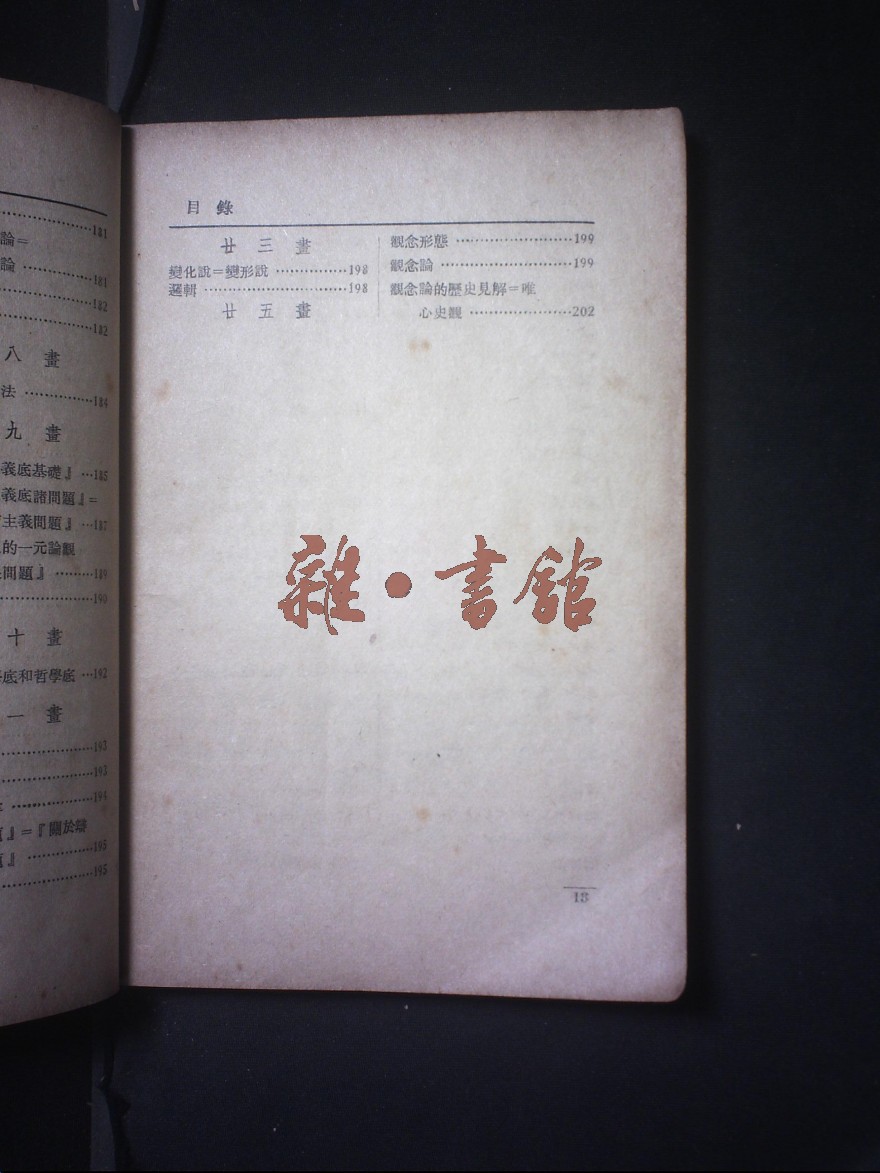 181
論=
論 ……………181
182
182
八 畫
法 ……………184
九 畫
義底基礎』 …185
義底諸問題』=
主義問題』 …187
的一元論觀
問題』 ………189
190
十 畫
底和哲學底 …192
一 畫
193
193
194
』=『關於辯
』 ……………195
195
目 錄
廿 三 畫
變化說=變形說 ……………198
邏輯 ……………………………198
廿 五 畫
觀念形態 ……………………199
觀念論 ………………………199
觀念論的歷史見解=唯
心史觀 …………………202
雜·書館
18